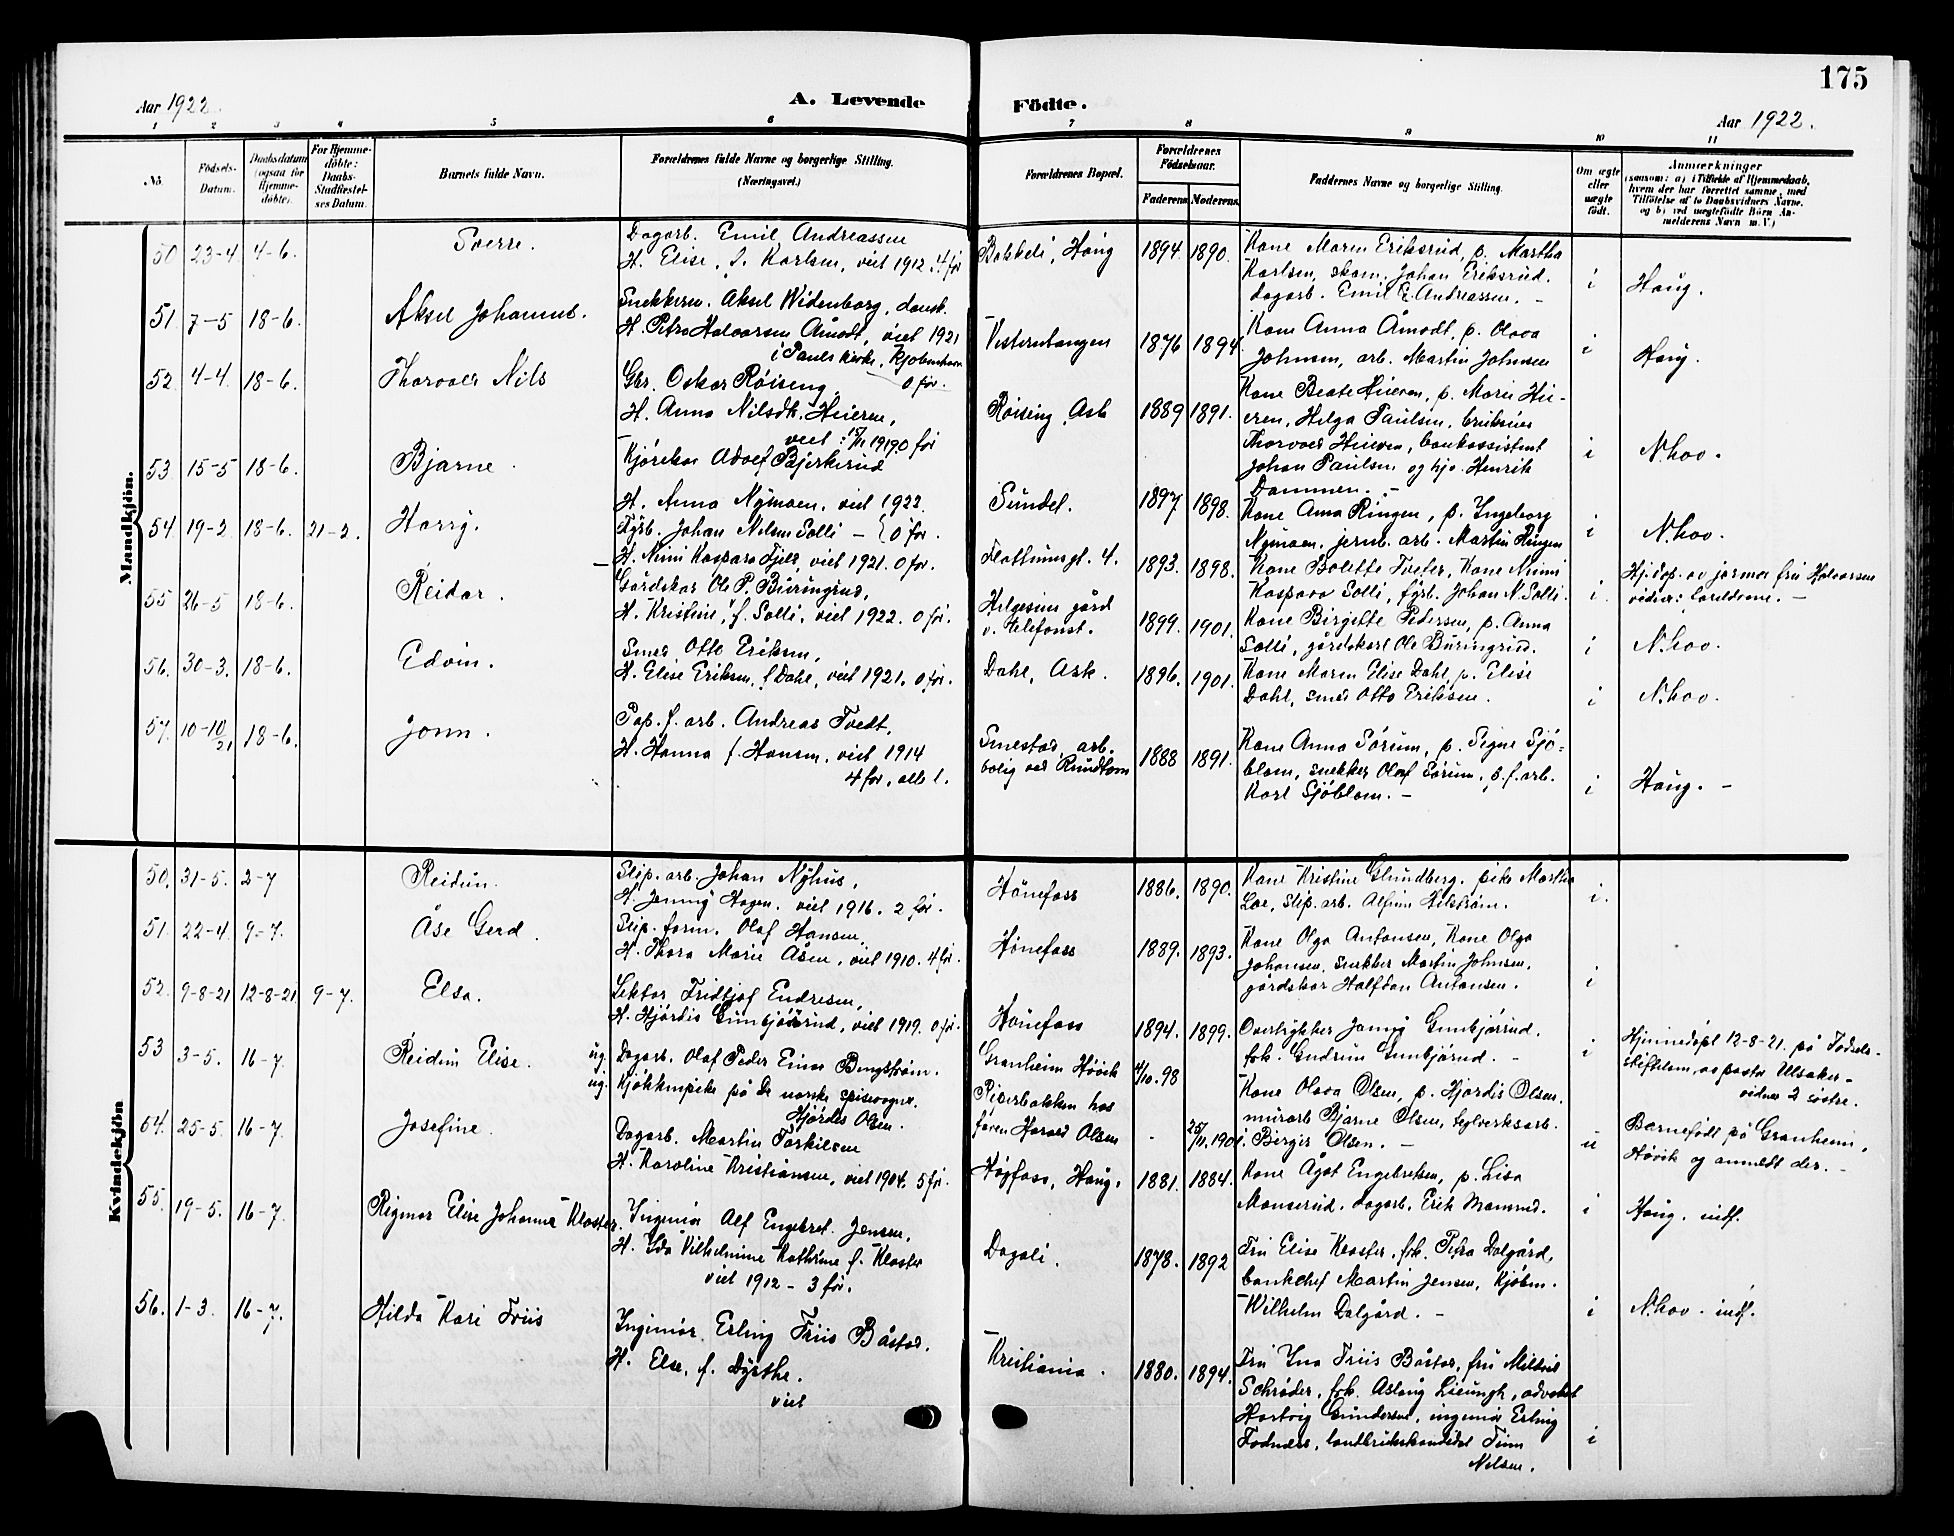 175
Aar 1922.
A. Levende
Födte.
Aar 1922.
1 2 3 4 5 6 7 8 9 10 11
No.
Födsels-
Datum.
Daabsdatum
(ogsaa for
Hjemme-
döbte).
For Hjemme-
döbte:
Daabs-
Stadfæstel-
ses Datum.
Barnets fulde Navn.
Forældrenes fulde Navne og borgerlige Stilling.
(Næringsvei.)
Forældrenes Bopæl.
Forældrenes
Födselsaar.
Faderens Moderens.
Faddernes Navne og borgerlige Stilling.
Om ægte
eller
uægte
født.
Anmærkninger
(saasom: a) i Tilfælde af Hjemmedaab,
hvem der har forrettet samme, med
Tilföielse af to Daabsvidners Navne,
og b) ved uægtefödte Börn An-
melderens Navn m. V.)
Mandkjön.
50 23-4 4-6. Sverre.
Dagarb. Emil Andreassen
H. Elise, f. Karlsen, viet 1912. 4 før
Bolskeli, Haug 1894. 1890.
Kone Maren Eriksrud, p. Martha
Karlsen, skom. Johan Eriksrud.
dagarb. Emil E. Andreassen. -
i Haug.
51 7-5 18-6. Aksel Johannes.
Snekkeren. Aksel Widenborg, dansk.
H. Petra Halvorsen Åmodt, viet 1921
i Pauls Kirke, Kjøbenhavn
0 før.
Vesterntangen 1876 1894.
Kone Anna Åmodt, p. Olava
Johnsen, arb. Martin Johnsen
i Haug.
52. 4-4. 18-6. Thorvald Nils
Gbr. Oskar Røiseng,
H. Anna Nilsdt. Heieren,
viet: 15/11 1919. 0 før
Røiseng, Ask 1889 1891.
Kone Beate Heieren, p. Marie Hei-
eren, Helga Paulsen, brukseier
Thorvald Heieren, bankassistent
Johan Paulsen og hjv. Henrik
Dammen. -
i N.hov.
53 15-5 18-6. Bjarne.
Kjørekar Adolf Bjerkerud
H. Anna Nymoen, viet 1922.
Sundet. 1897 1898.
Kone Anna Ringen, p. Ingeborg
Nymoen, jernb. arb. Martin Ringen
i N.hov.
54. 19-2 18-6. 21-2. Harry.
Fyrb. Johan Nelson Solli - } 0 før.
H. Mimi Kaspara Fjeld, viet 1921. 0 før.
Flattumsgt. 4. 1893. 1898.
Kone Bolette Tveter, Kone Mimi
Kaspara Solli, fyrb. Johan N. Solli.
i. Hj.døp. av jormor fru Halvorsen
vidner: foreldrene. -
55 26-5 18-6. Reidar.
Gårdskar Ole P. Buringrud,
H. Kristine, f. Solli, viet 1922. 0 før.
Helgesens gård
v. telefonst. 1899. 1901.
Kone Birgitte Pedersen, p. Anna
Solli, gårdskarl Ole Buringrud.
i N.hov.
56. 30-3. 18-6. Edvin.
Smed Otto Eriksen,
H. Elise Eriksen, f. Dahl, viet 1921. 0 før.
Dahl, Ask. 1896. 1901.
Kone Maren Elise Dahl, p. Elise
Dahl, smed Otto Eriksen.
i N.hov.
57. 10-10/21 18-6. Jonn.
Pap. f. arb. Andreas Tvedt,
H. Hanna f. Hansen, viet 1914
4 før, alle l.
Smestad, arb.
bolig ved Rundtom 1888 1891.
Kone Anna Sørum, p. Signe Sjö-
blom, snekker Olaf Sørum, p. f. arb.
Karl Sjöblom. -
i Haug. -
Kvindekjön
50. 31-5. 2-7 Reidun.
Slip. arb. Johan Nyhus,
H. Jenny Hagen. viet 1916. 2 før.
Hönefoss 1886. 1890.
Kone Kristine Glundberg. pike Martha
Loe, slip. arb. Alfinn Hilstrøm.
i.
51. 22-4. 9-7. Åse Gerd.
Slip. form. Olaf Hansen,
H. Thora Marie Åsen, viet 1910. 4 før.
Hønefoss 1889. 1893.
Kone Olga Antonsen, Kone Olga
Johansen, snekker Martin Johnsen.
gårdskar Halfdan Antonsen.
i
52. 9-8-21 12-8-21 9-7. Elsa.
Lektor Fridtjof Endresen,
H. Hjördis Gunbjörrud, viet 1919. 0 før.
Hønefoss 1894. 1899.
Overligkker Jenny Gunbjörrud.
frk. Gudrun Gunbjörrud. -
i Hjemmedøpt 12-8-21. på Fødsels-
stiftelsen, av pastor Ulsaker -
vidner 2 søstre.
53 3-5. 16-7. Reidun Elise.
ug. Dagarb. Olaf Peder Einar Bengstrøm.
ug. Kjøkkenpike på De norske spisevogner.
Hjördis Olsen.
Granheim Høvik
Piperbakken hos
faren Harald Olsen
4/10. 98 - 25/11. 1901.
Kone Olava Olsen, p. Hjördis Olsen.
murarb Bjarne Olsen, teglverksarb.
Birger Olsen. -
u Barnefødt på Granheim,
Høvik og anmeldt der. -
54. 25-5. 16-7. Josefine.
Dagarb. Martin Torkilsen
H. Karoline Kristiansen, viet 1904. 5 før.
Høgfoss, Haug. 1881. 1884.
Kone Ågot Engebretsen, p. Lisa
Monserud, dagarb. Erik Monserud.
i Haug. indf.
55. 19-5. 16-7. Rigmor Elise Johanne Kloster.
Ingeniör Alf Engebret Jensen,
H. Ida Vilhelmine Kathrine f. Kloster
viet 1912 - 3 før.
Dagali. 1878. 1892
Fru Elise Kloster, frk. Petra Dalgård,
bankchef Martin Jensen, Kjøbm.
Wilhelm Dalgård. -
i N.hov. indf.
56. 1-3. 16-7. Hilda Kari Friis
Ingeniør. Erling Friis Båstad.
H. Else, f. Dyrthe.
viet
Kristiania. 1880. 1894.
Fru Ina Friis Båstad, fru Mildrid
Schrøder, frk. Aslaug Lieungh, advokat
Hartvig Gundersen, ingeniør Erling
Fodnæs, landbrukskandidat Finn
Nilsen.
i